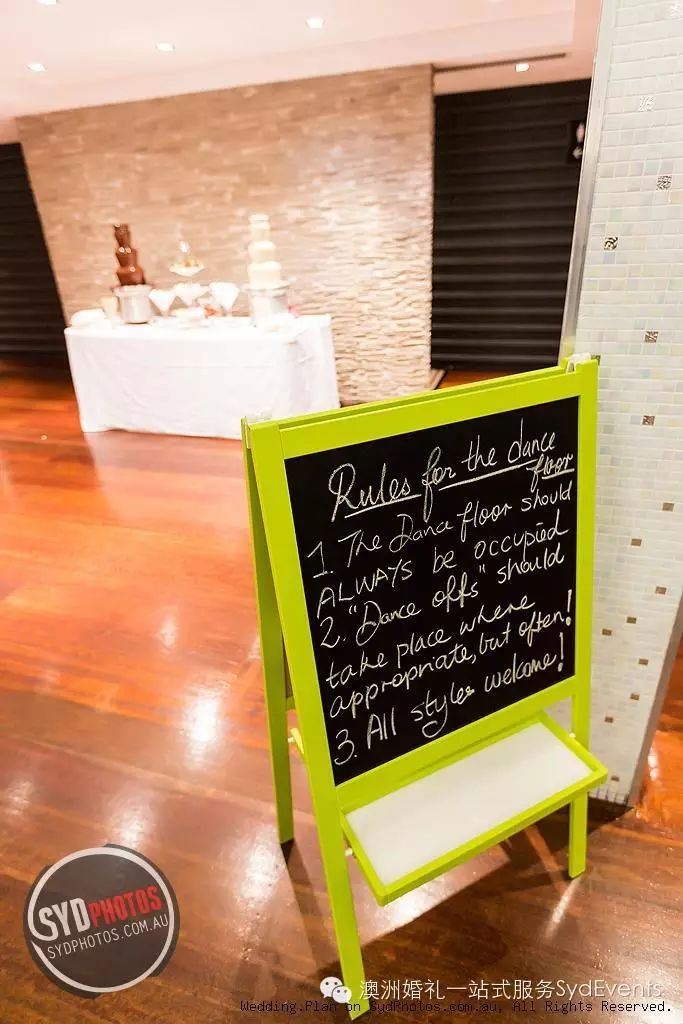 Rules for the dance
floor
1. The Dance floor should
ALWAYS be occupied
2. "Dance offs" should
take place where
appropriate, but often!
3. All styles welcome!
SYDPHOTOS
SYDPHOTOS.COM.AU
澳洲婚礼一站式服务SydEvents
Wedding.Plan on sydPhotos.com.au, All Rights Reserved.